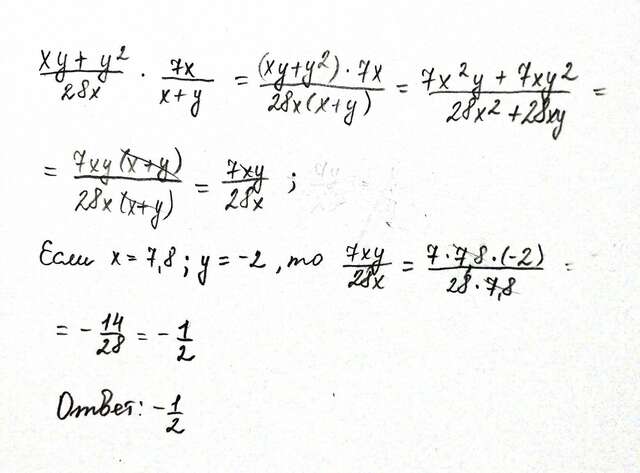 (xy + y²)/(28x) · (7x)/(x + y) = ((xy + y²) · 7x)/(28x(x + y)) = (7x²y + 7xy²)/(28x² + 28xy) =
= (7xy(x + y))/(28x(x + y)) = (7xy)/(28x) ;
Если x = 7,8 ; y = -2 , то (7xy)/(28x) = (7 · 7,8 · (-2))/(28 · 7,8) =
= - 14/28 = - 1/2
Ответ: - 1/2